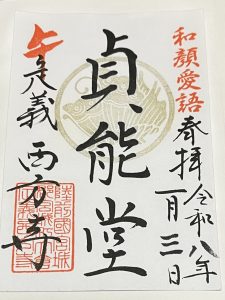 和顔愛語
奉拝
令和八年
一月三日
貞能堂
上棄義
西方寺